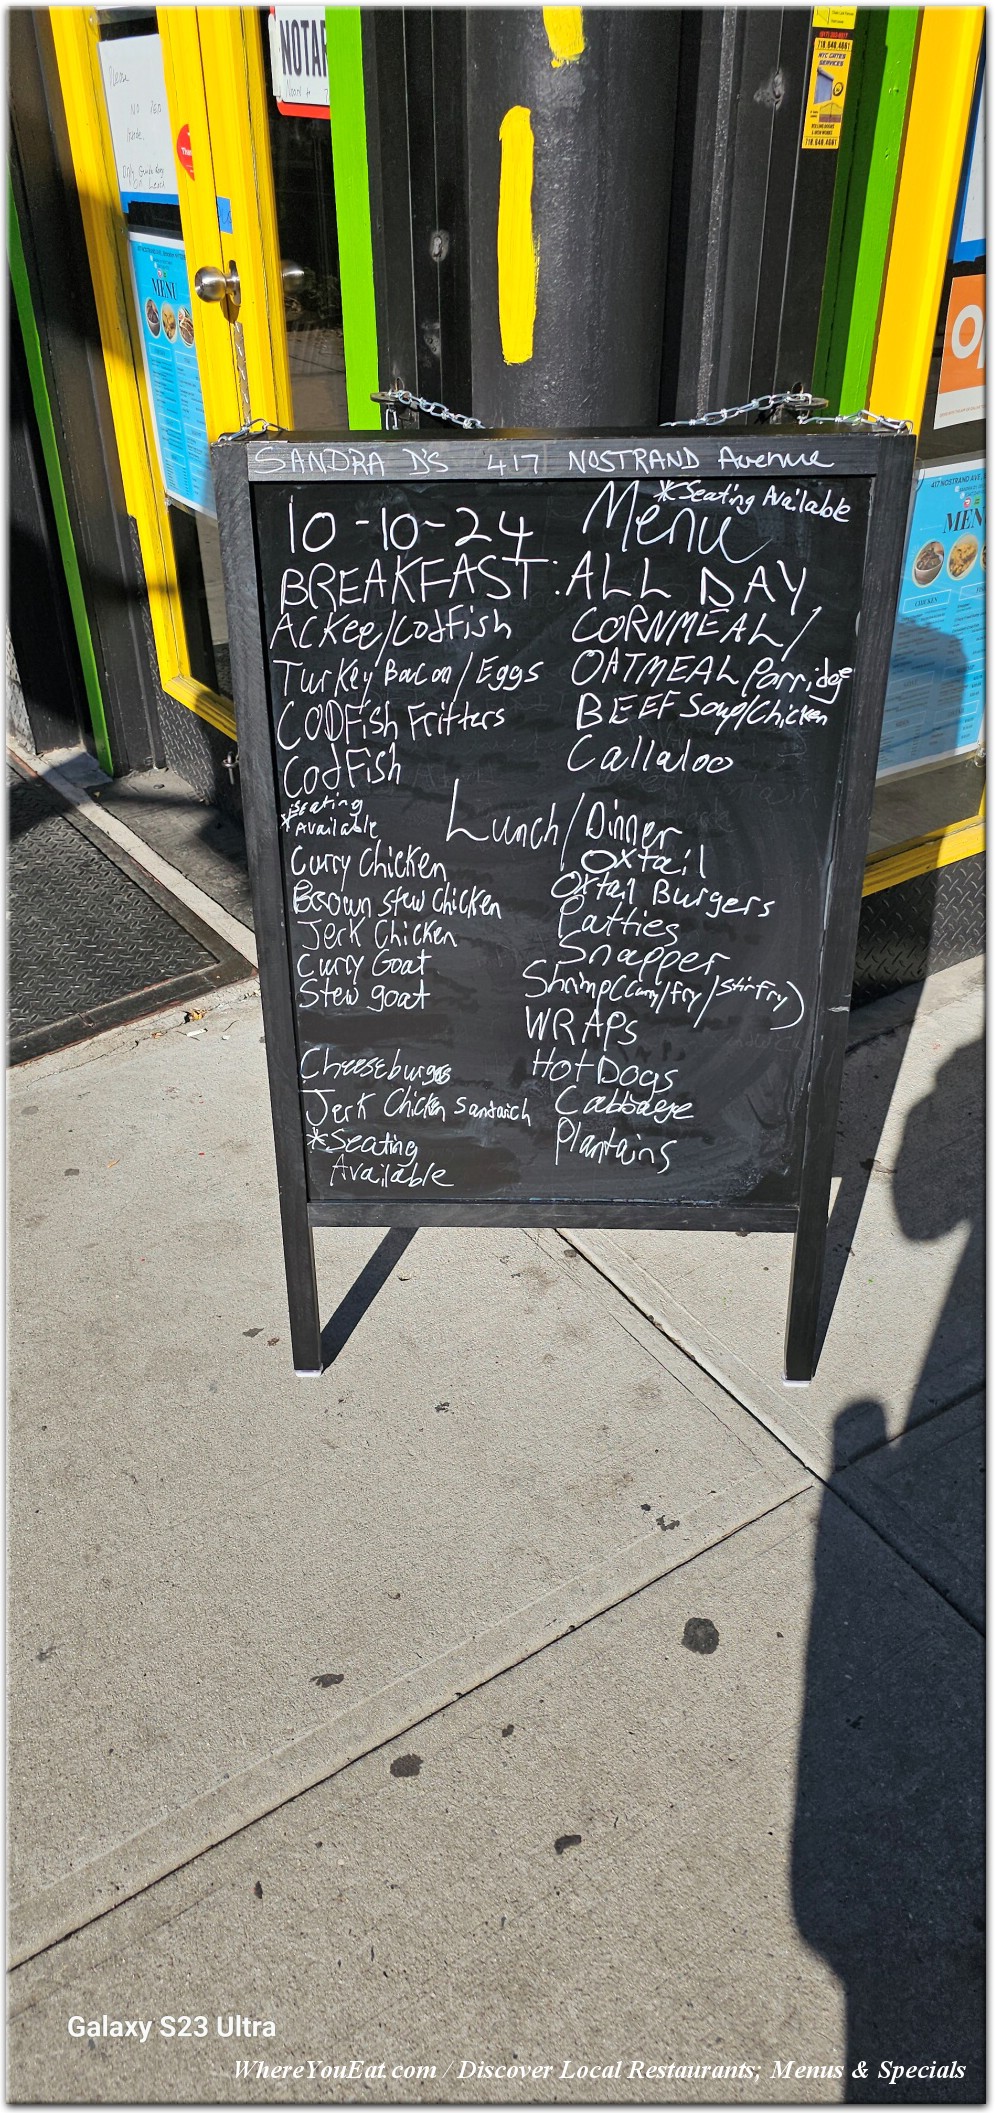 NOTAR
Please
718.648.4661
NYC GATES
SERVICES
718.648.4661
MENU
SANDRA D'S 417 NOSTRAND Avenue
*Seating Available
10-10-24 Menu
BREAKFAST: ALL DAY
Ackee/Codfish
Turkey Bacon/Eggs
CODFish Fritters
CodFish
CORNMEAL/
OATMEAL Porridge
BEEF Soup/Chicken
Callaloo
*Seating
Available
Lunch/Dinner
Curry Chicken
Brown Stew Chicken
Jerk Chicken
Curry Goat
Stew goat
Cheeseburgers
Jerk Chicken Sandwich
*Seating
Available
Oxtail
Oxtail Burgers
Patties
Snapper
Shrimp(Curry/fry/Stirfry)
WRAPs
Hot Dogs
Cabbage
Plantains
417 NOSTRAND AVE,
MEN
CHICKEN
Galaxy S23 Ultra
WhereYouEat.com / Discover Local Restaurants; Menus & Specials